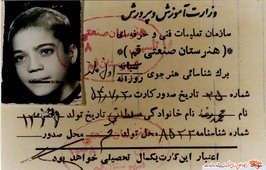 وزارت آموزش و پرورش
سازمان تعلیمات فنی و حرفه‌ای
( هنرستان صنعتی قم )
برگ شناسائی هنرجوی روزانه
شماره ۳۵ تاریخ صدور کارت
نام محمدرضا نام خانوادگی سلطانی تولد ۱۳۳۹
شماره شناسنامه ۸۵۳۲ محل تولد قم محل صدور
اعتبار این کارت یکسال تحصیلی خواهد بود